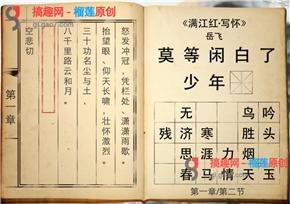 搞趣网 - 榴莲原创
怒发冲冠，凭栏处、潇潇雨歇。
抬望眼、仰天长啸，壮怀激烈。
三十功名尘与土，
八千里路云和月。
空悲切
第一章
《满江红·写怀》
岳飞
莫等闲白了
少年
无 鸟 吟
残 济 寒 胜 头
思 涯 力 烟
春 马 情 天 玉
第一章/第二节
搞趣网 - 榴莲原创